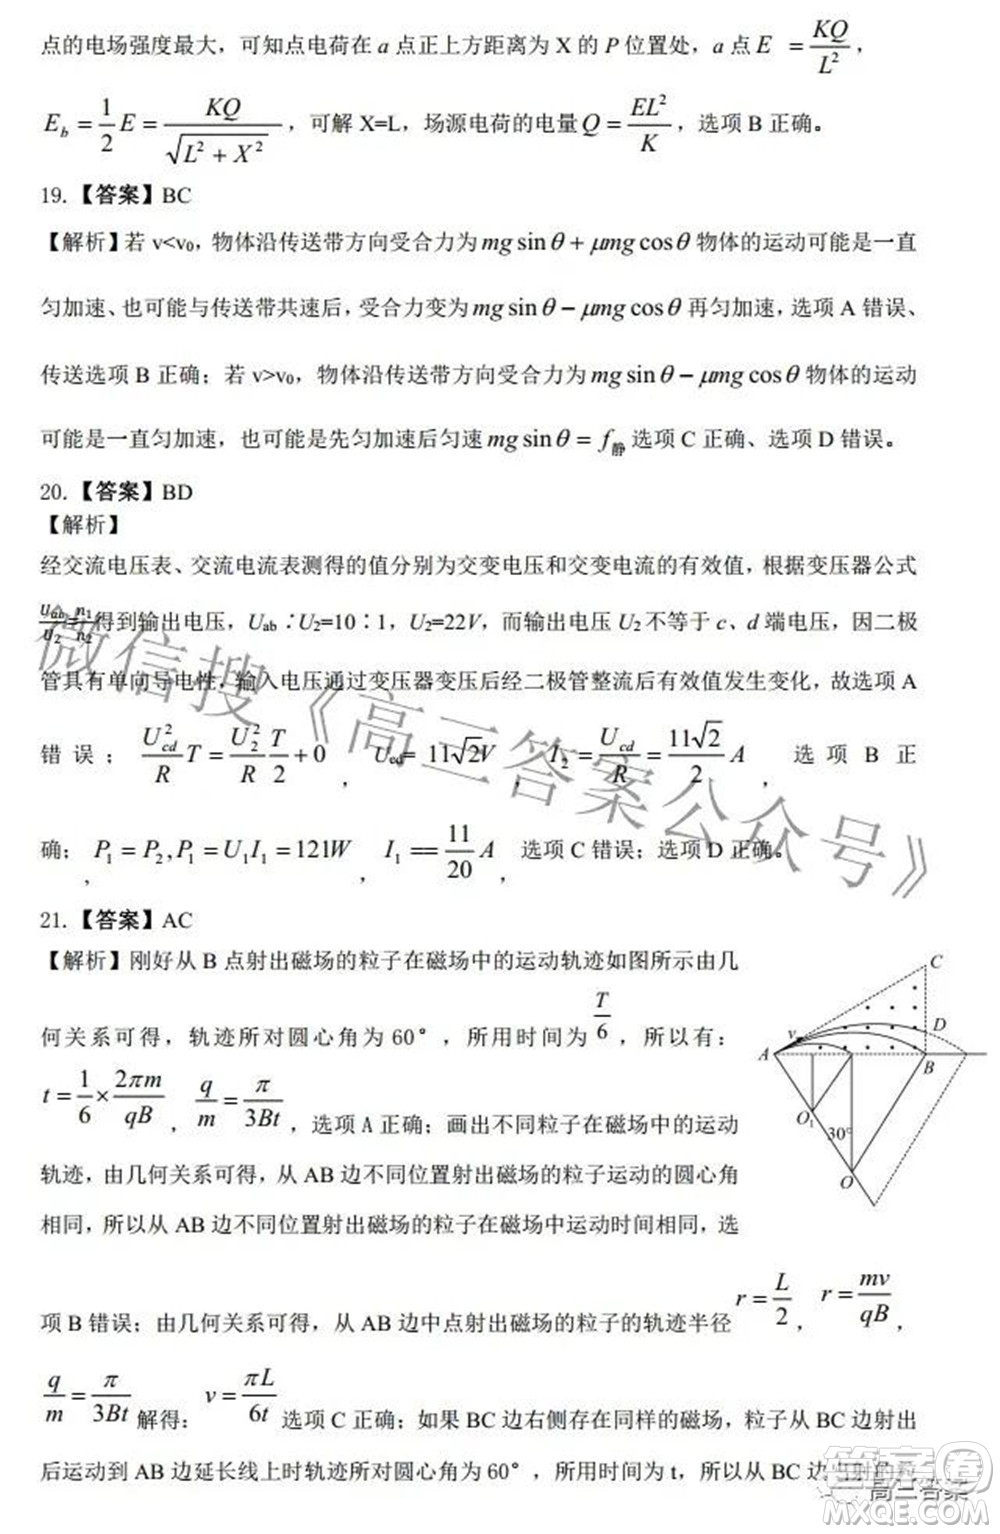 点的电场强度最大，可知点电荷在 a 点正上方距离为 X 的 P 位置处，a 点 E = KQ/L²，
E_b = 1/2 E = KQ/√(L² + X²)，可解 X=L，场源电荷的电量 Q = EL²/K，选项 B 正确。
19.【答案】BC
【解析】若 v<v₀，物体沿传送带方向受合力为 mg sinθ + μmg cosθ 物体的运动可能是一直
匀加速、也可能与传送带共速后，受合力变为 mg sinθ − μmg cosθ 再匀加速，选项 A 错误、
传送选项 B 正确；若 v>v₀，物体沿传送带方向受合力为 mg sinθ − μmg cosθ 物体的运动
可能是一直匀加速，也可能是先匀加速后匀速 mg sinθ = f静 选项 C 正确、选项 D 错误。
20.【答案】BD
【解析】
经交流电压表、交流电流表测得的值分别为交变电压和交变电流的有效值，根据变压器公式
U_ab/U_2 = n_1/n_2 得到输出电压，U_ab∶U₂=10∶1，U₂=22V，而输出电压 U₂ 不等于 c、d 端电压，因二极
管具有单向导电性，输入电压通过变压器变压后经二极管整流后有效值发生变化，故选项 A
错误；U_cd²/R T = U_2²/R T/2 + 0，U_cd= 11√2V，I_2 = U_cd/R = 11√2/2 A，选项 B 正
确；P_1 = P_2, P_1 = U_1I_1 = 121W，I_1 == 11/20 A，选项 C 错误；选项 D 正确。
21.【答案】AC
【解析】刚好从 B 点射出磁场的粒子在磁场中的运动轨迹如图所示由几
何关系可得，轨迹所对圆心角为 60°，所用时间为 T/6，所以有：
t = 1/6 × 2πm/qB，q/m = π/3Bt，选项 A 正确；画出不同粒子在磁场中的运动
轨迹，由几何关系可得，从 AB 边不同位置射出磁场的粒子运动的圆心角
相同，所以从 AB 边不同位置射出磁场的粒子在磁场中运动时间相同，选
项 B 错误；由几何关系可得，从 AB 边中点射出磁场的粒子的轨迹半径 r = L/2，r = mv/qB，
q/m = π/3Bt 解得：v = πL/6t 选项 C 正确；如果 BC 边右侧存在同样的磁场，粒子从 BC 边射出
后运动到 AB 边延长线上时轨迹所对圆心角为 60°，所用时间为 t，所以从 BC 边出射的粒
C
D
v
A
B
O₁
30°
O
微信搜《高三答案公众号》
答案圈
MXQE.COM
高三答案